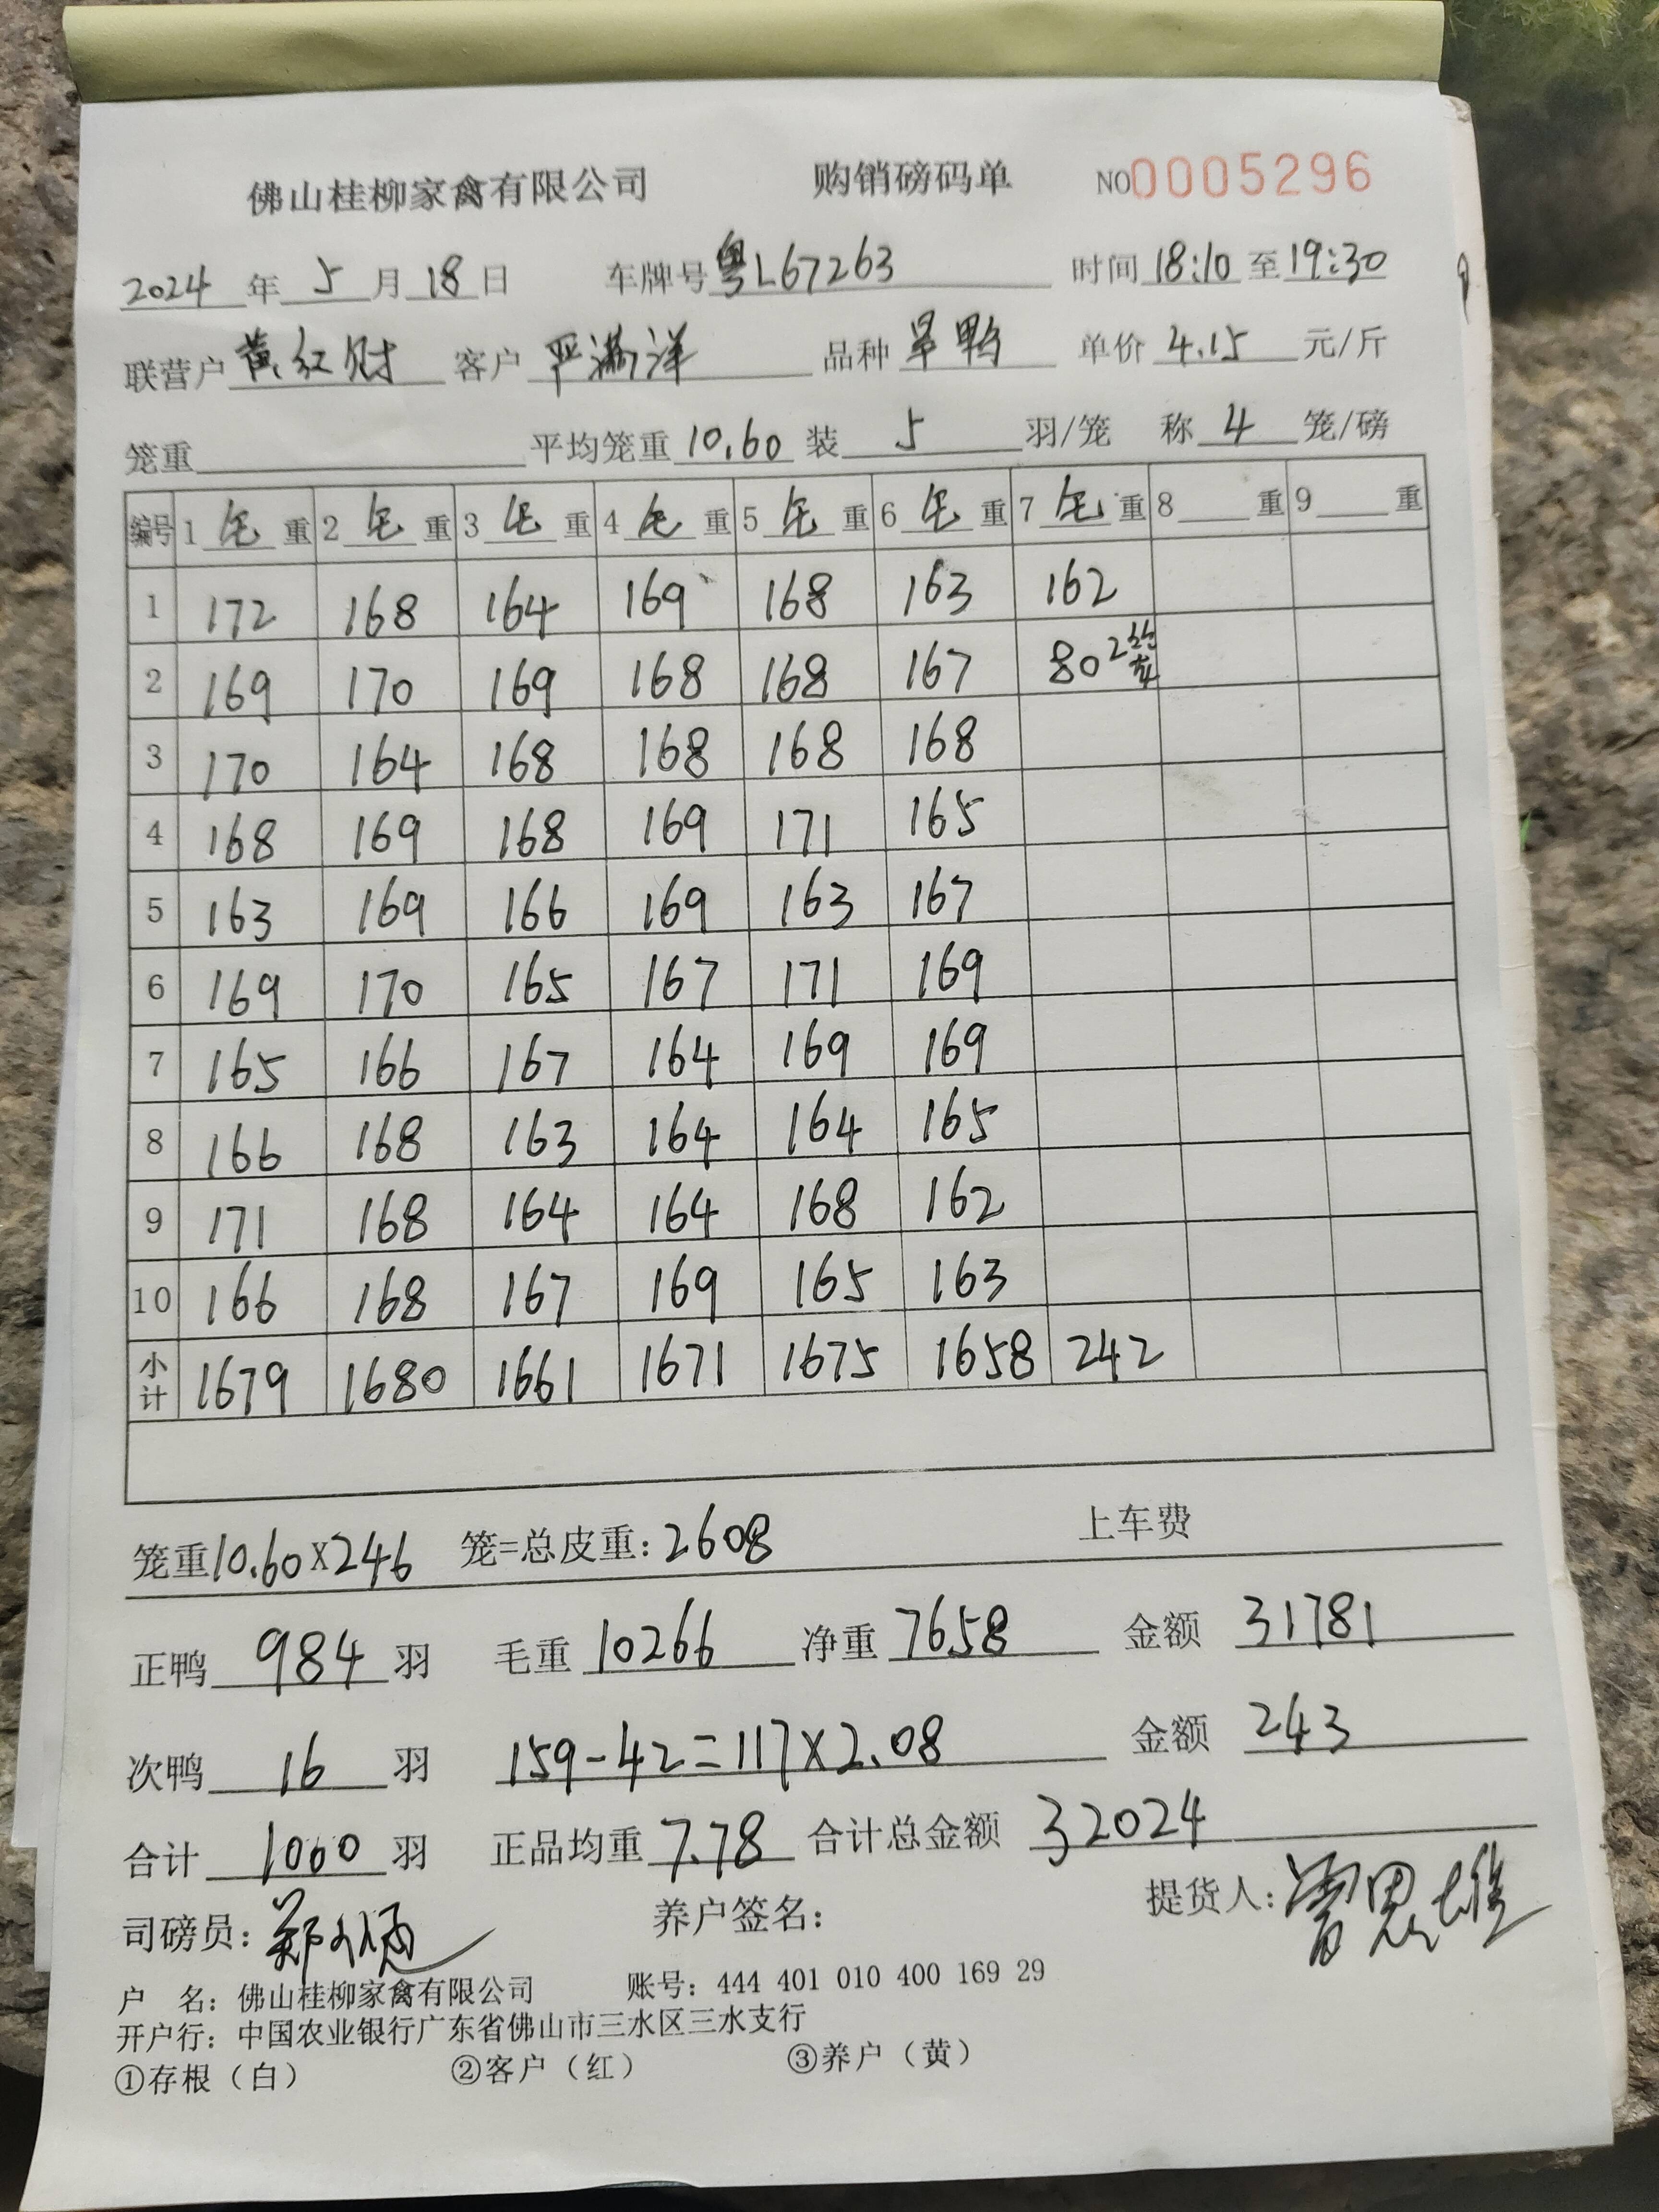 佛山桂柳家禽有限公司 购销磅码单 NO0005296
2024年5月18日 车牌号粤L67263 时间18:10至19:30
联营户黄红财 客户严满洋 品种旱鸭 单价4.15元/斤
笼重 平均笼重10.60装5羽/笼 称4笼/磅
编号 1毛重 2毛重 3毛重 4毛重 5毛重 6毛重 7毛重 8重 9重
1 172 168 164 169 168 163 162
2 169 170 169 168 168 167 80 2笼
3 170 164 168 168 168 168
4 168 169 168 169 171 165
5 163 169 166 169 163 167
6 169 170 165 167 171 169
7 165 166 167 164 169 169
8 166 168 163 164 164 165
9 171 168 164 164 168 162
10 166 168 167 169 165 163
小计 1679 1680 1661 1671 1675 1658 242
笼重10.60X246 笼=总皮重:2608 上车费
正鸭984羽 毛重10266 净重7658 金额31781
次鸭16羽 159-42=117X2.08 金额243
合计1000羽 正品均重7.78 合计总金额32024
司磅员: 养户签名: 提货人:雷思雄
户 名:佛山桂柳家禽有限公司 账号:444 401 010 400 169 29
开户行:中国农业银行广东省佛山市三水区三水支行
①存根(白) ②客户(红) ③养户(黄)